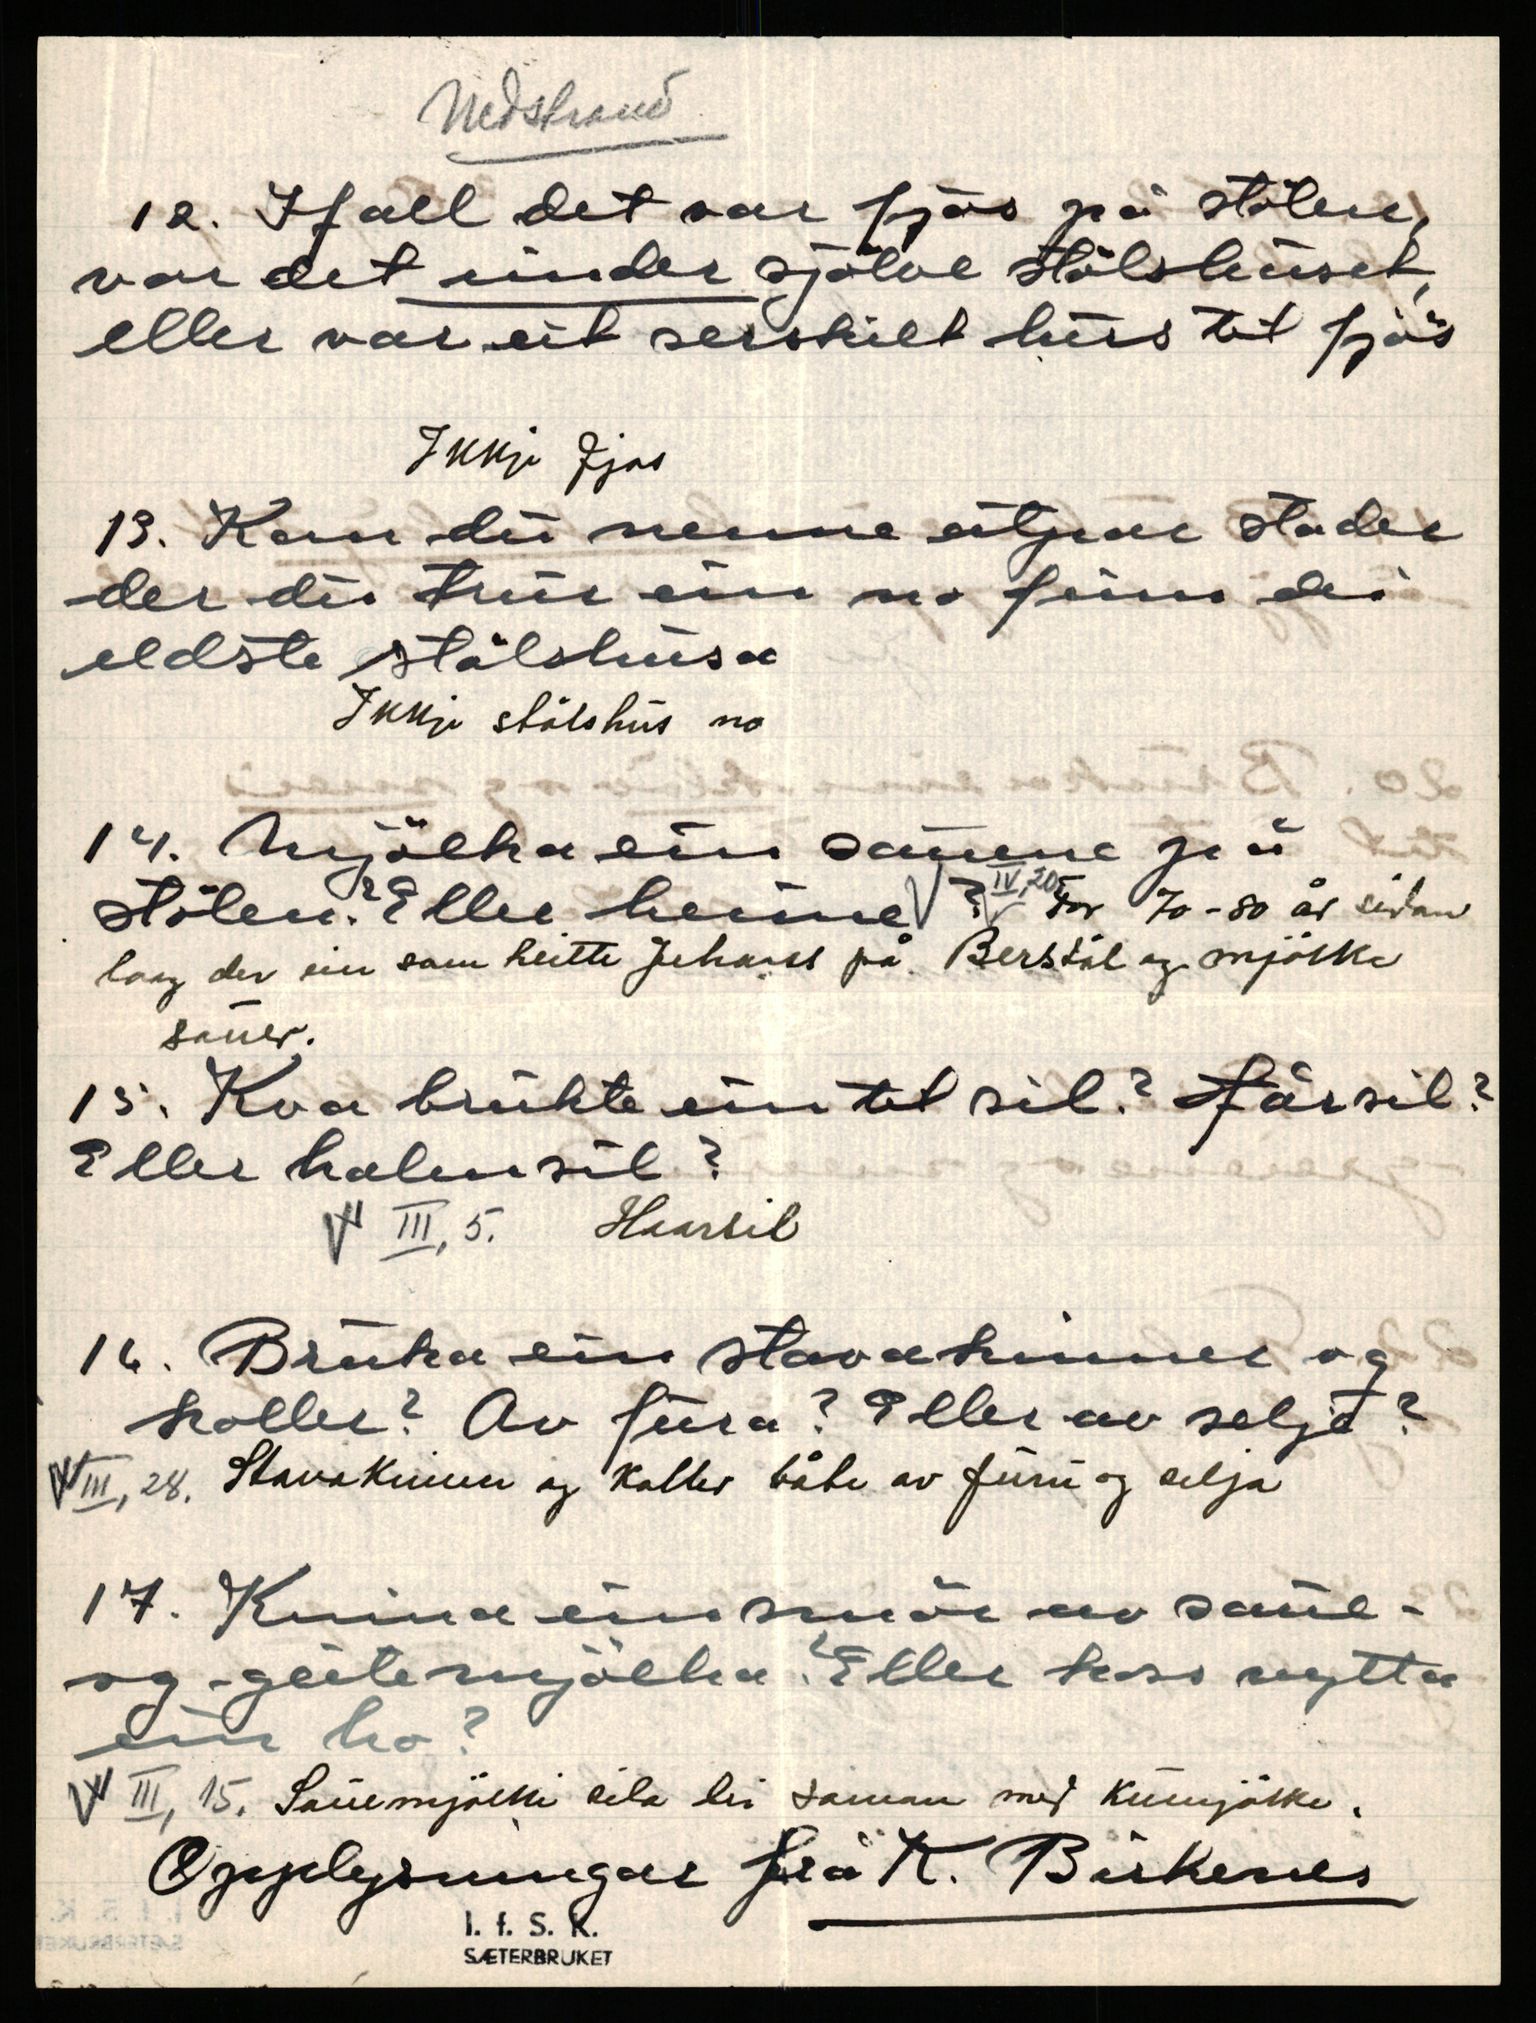 Nedstrand
12. Ifall det var fjøs på stölen,
var det under sjölve stölshuset,
eller var eit serskilt hus tit fjös
Ikkje fjos
13. Kan du nenne eitpar stader
der du trur ein no finn dei
eldste stölshusa
Ikkje stölshus no
14. Mjölka ein sauene på
stölen? Eller heime ? IV, 20. For 70-80 år sidan
laag der ein som heitte på Berstöl og mjölka
sauer.
15. Kva brukte ein til sil? Hårsil?
Eller halmsil?
V III, 5. Haarsil
16. Bruka ein stavakinner og
koller? Av fura? Eller av selje?
V III, 28. Stavakinner og koller både av furu og selja
17. Kinna ein smör av saue-
og -geitemjölka? Eller koss nytta
ein ho?
V III, 15. Sauemjölki sila dei saman med kumjölka.
Opplysningar frå K. Birkenes
I. f. S. K.
SÆTERBRUKET